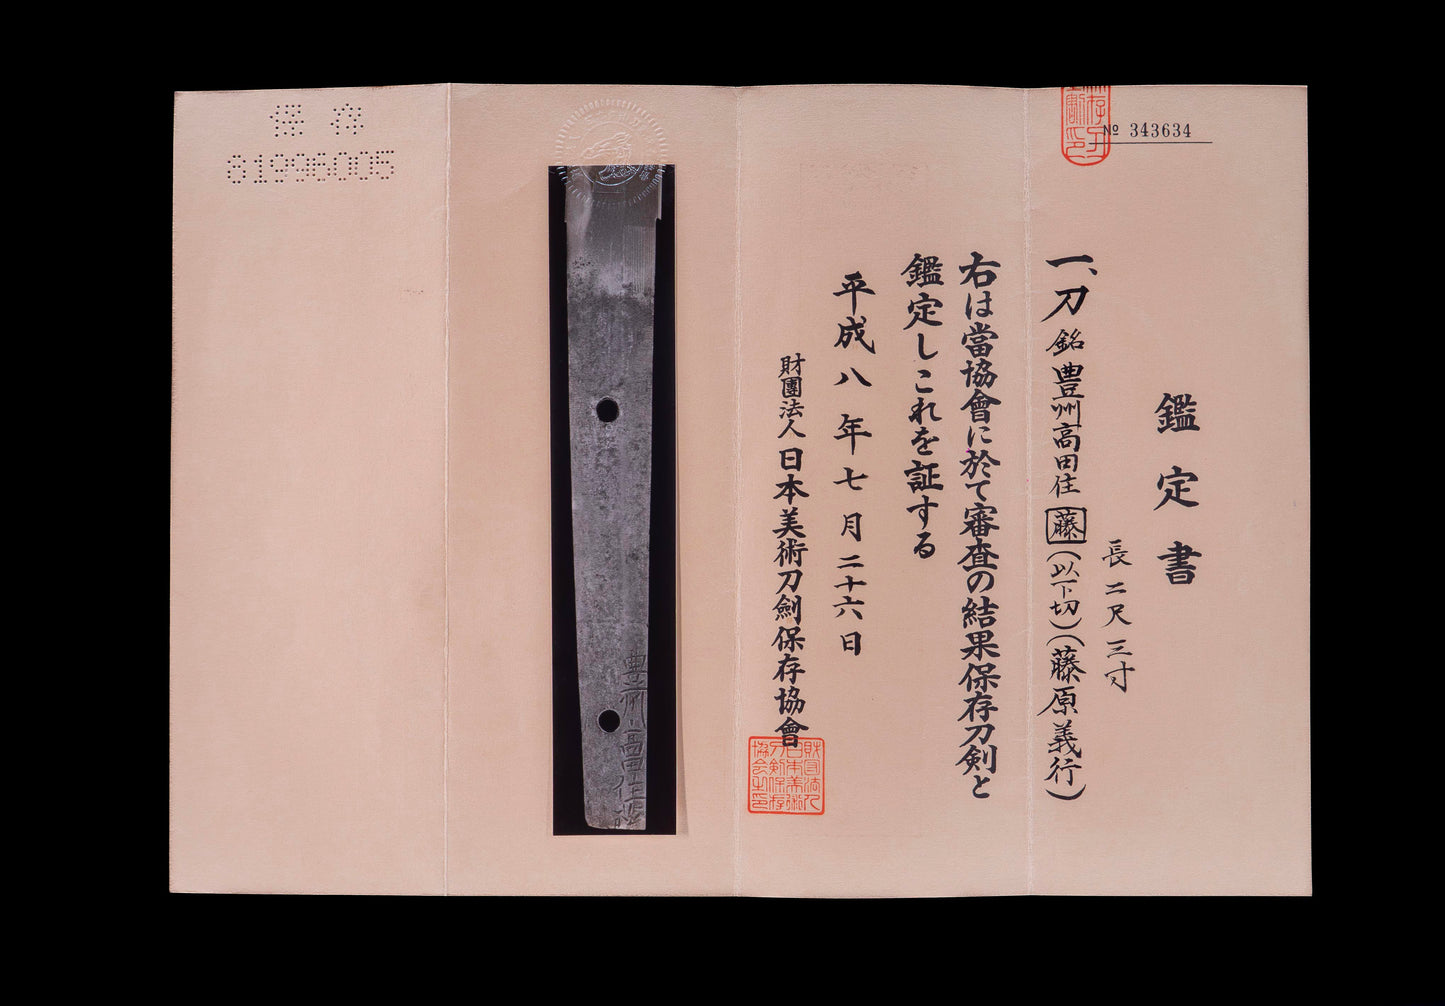 № 343634
鑑定書
長二尺三寸
一、刀 銘 豊州高田住藤(以下切)(藤原義行)
右は當協會に於て審査の結果保存刀剣と
鑑定しこれを証する
平成八年七月二十六日
財團法人日本美術刀劍保存協會
財団法人日本美術刀剣保存協会之印
豊州高田住藤
保存
81996005